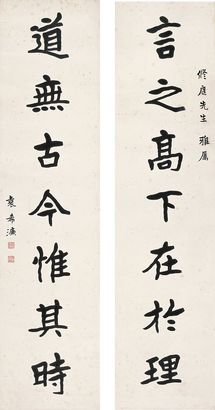 言之高下在於理
修庭先生 雅属
道無古今惟其時
袁希濂